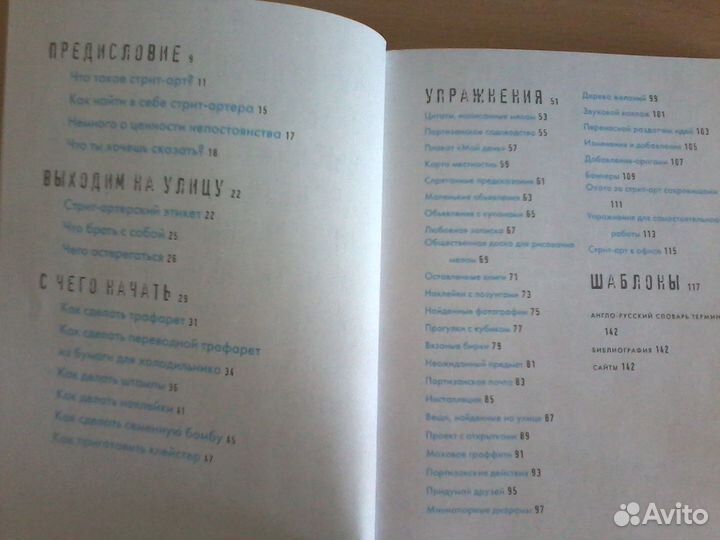 ПРЕДИСЛОВИЕ 9
Что такое стрит-арт? 11
Как найти в себе стрит-артера 15
Немного о ценности непостоянства 17
Что ты хочешь сказать? 18
ВЫХОДИМ НА УЛИЦУ 22
Стрит-артерский этикет 22
Что брать с собой 25
Чего остерегаться 26
С ЧЕГО НАЧАТЬ 29
Как сделать трафарет 31
Как сделать переводной трафарет
из бумаги для холодильника 34
Как делать штампы 36
Как делать наклейки 41
Как сделать семенную бомбу 45
Как приготовить клейстер 47
УПРАЖНЕНИЯ 51
Цитаты, написанные мелом 53
Партизанское садоводство 55
Плакат «Мой день» 57
Карта местности 59
Спрятанные предсказания 61
Маленькие объявления 63
Объявления с купонами 65
Любовная записка 67
Общественная доска для рисования
мелом 69
Оставленные книги 71
Наклейки с лозунгами 73
Найденные фотографии 75
Прогулки с кубиком 77
Вязаные бирки 79
Неожиданный предмет 81
Партизанская почта 83
Инсталляция 85
Вещи, найденные на улице 87
Проект с открытками 89
Моховое граффити 91
Партизанские действия 93
Придумай друзей 95
Миниатюрные диорамы 97
Дерево желаний 99
Звуковой коллаж 101
Переносной раздатчик идей 103
Изменения и добавления 105
Добавления-оригами 107
Баннеры 109
Охота за стрит-арт сокровищами
111
Упражнения для самостоятельной
работы 113
Стрит-арт в офисе 115
ШАБЛОНЫ 117
АНГЛО-РУССКИЙ СЛОВАРЬ ТЕРМИН
142
БИБЛИОГРАФИЯ 142
САЙТЫ 142
Avito